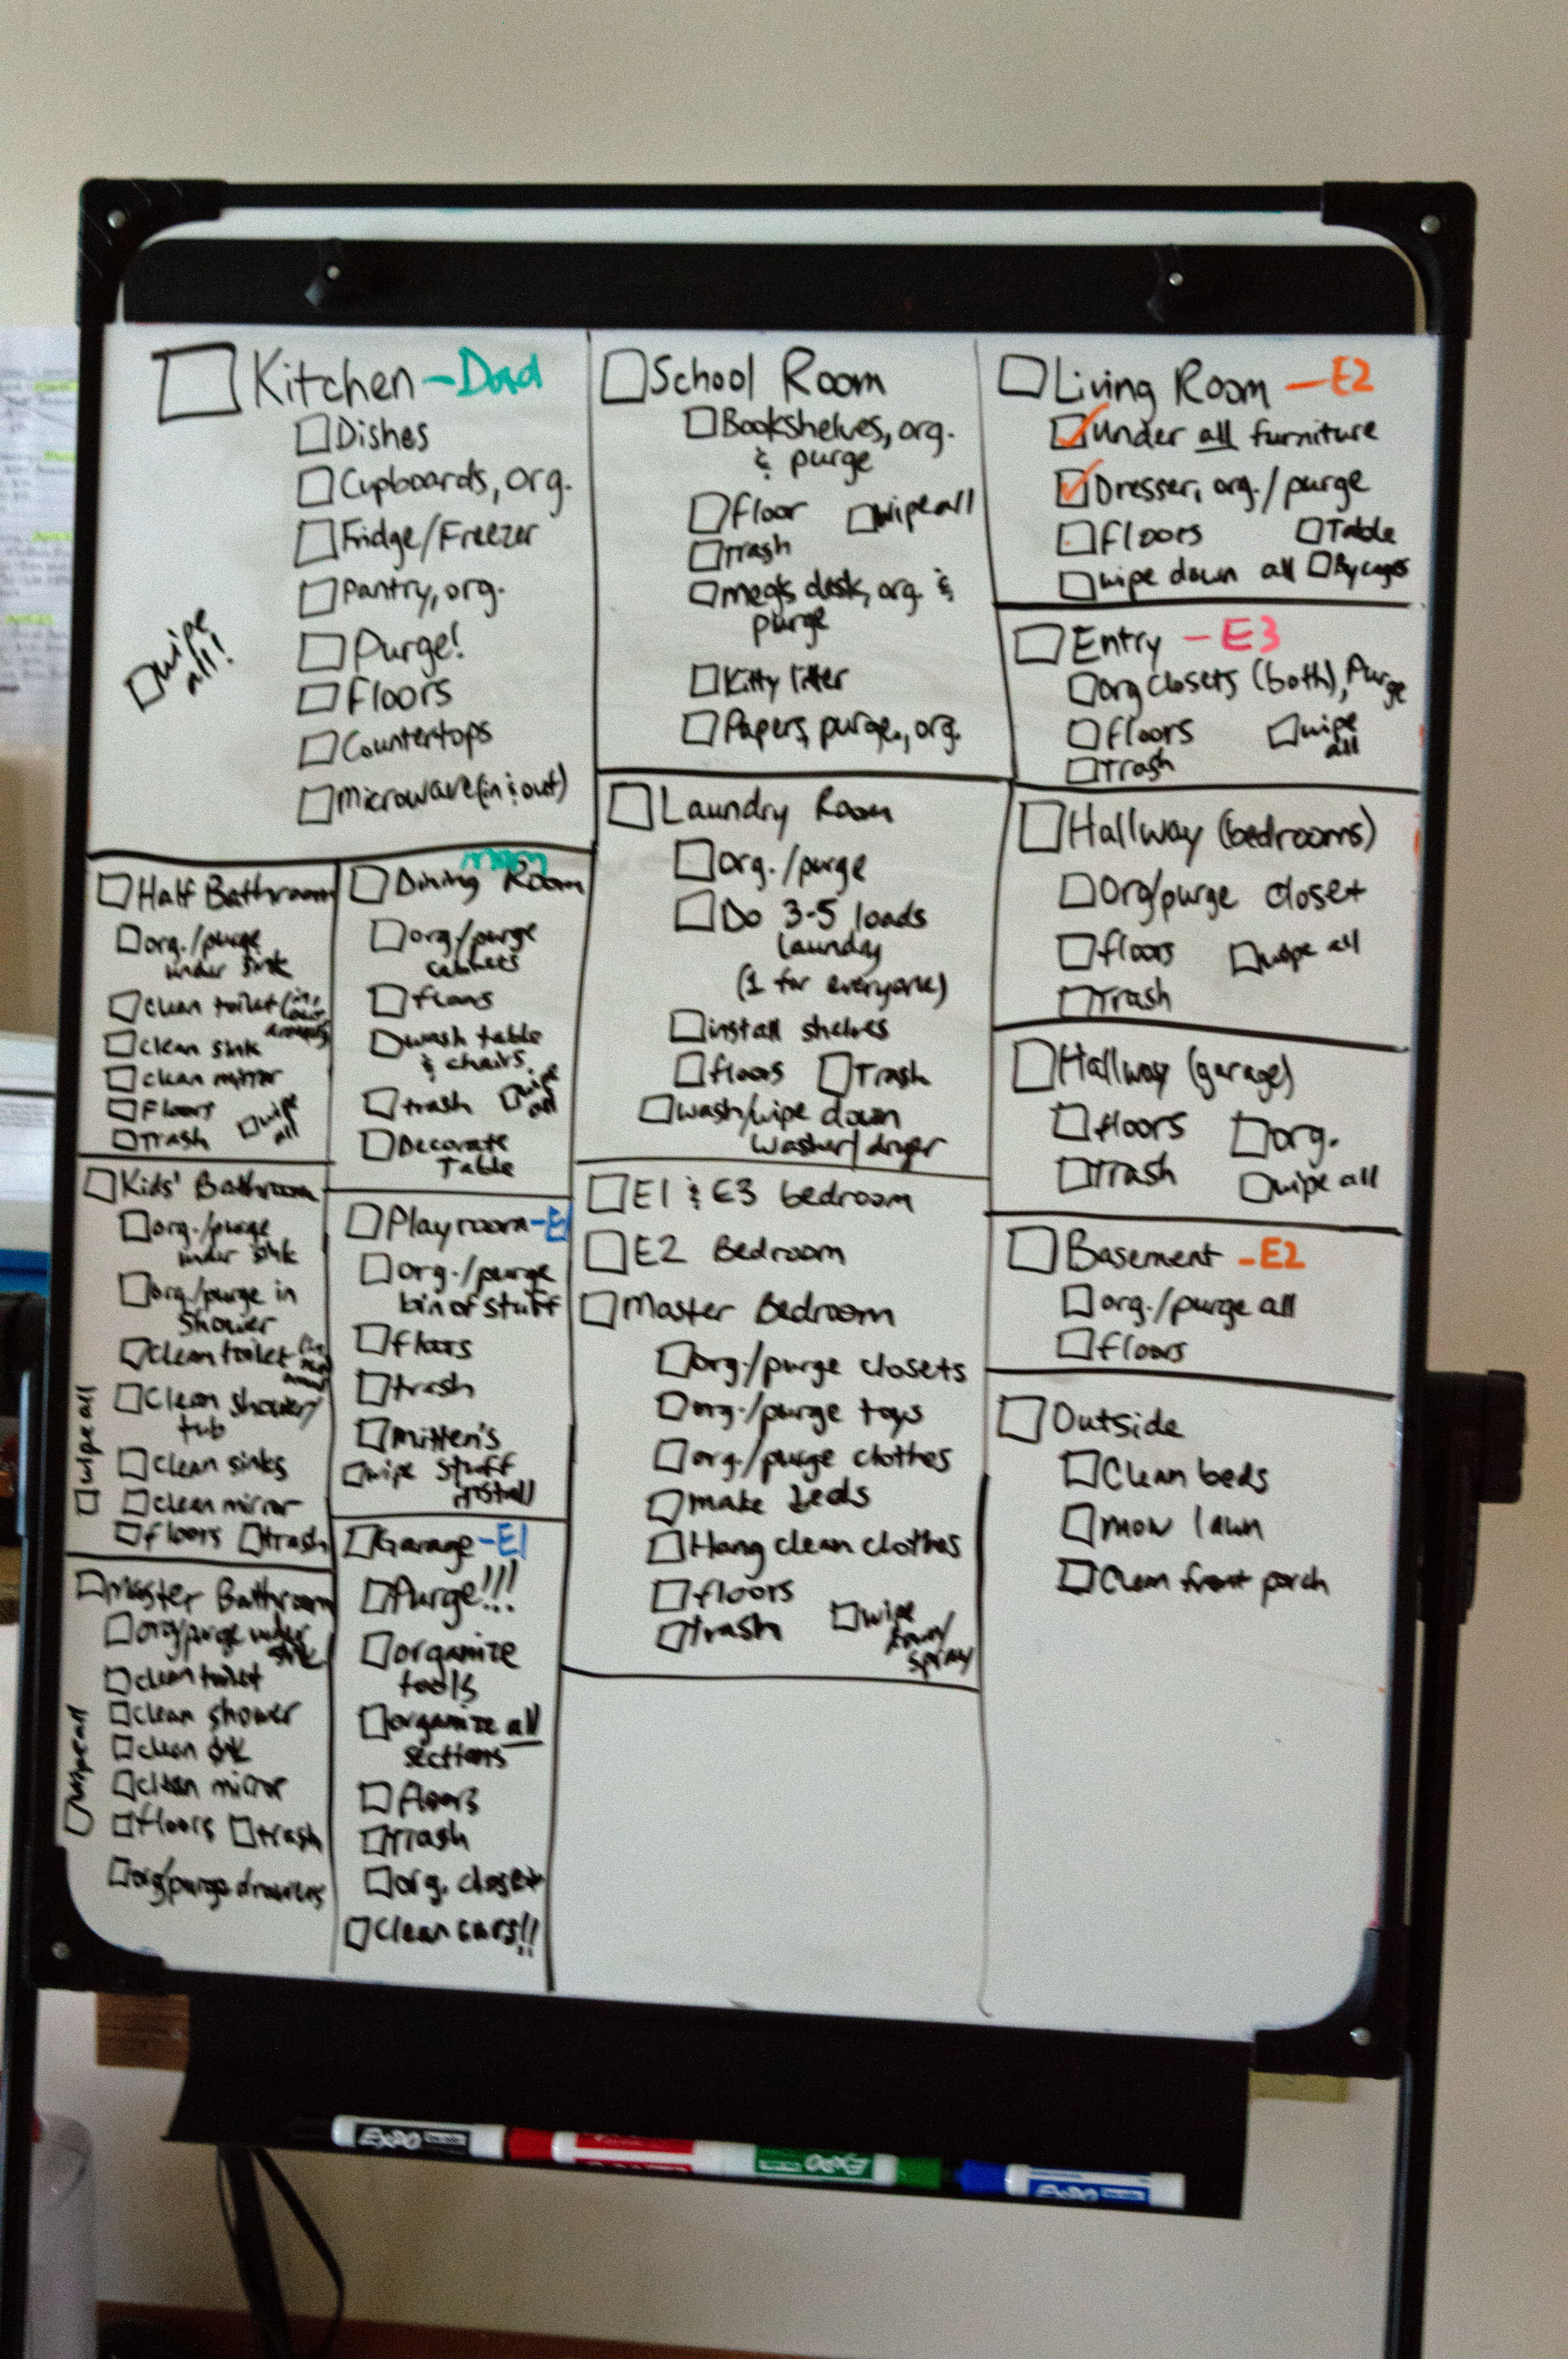 Kitchen - Dad
Dishes
Cupboards, org.
Fridge/Freezer
Pantry, org.
Purge!
Floors
Countertops
Microwave (in & out)
wipe
all!
Half Bathroom
org./purge
under sink
Clean toilet (in,
Clean sink
Clean mirror
Floors
Trash
wipe
all
Kids' Bathroom
org./purge
under sink
org./purge in
shower
Clean toilet
Clean shower/
tub
Clean sinks
Clean mirror
floors
trash
wipe all
Master Bathroom
org/purge under
sink
clean toilet
clean shower
clean sink
clean mirror
floors
trash
org/purge drawers
wipe all
mom
Dining Room
org./purge
cabinets
floors
wash table
& chairs
trash
wipe
all
Decorate
Table
Playroom - E1
org./purge
bin of stuff
floors
trash
Mitten's
stuff
wipe
install
Garage - E1
Purge!!!
organize
tools
organize all
sections
floors
Trash
org. closet
Clean cars!!
School Room
Bookshelves, org.
& purge
floor
wipe all
Trash
Meg's desk, org. &
purge
Kitty litter
Papers, purge, org.
Laundry Room
org./purge
Do 3-5 loads
laundry
(1 for everyone)
install shelves
floors
Trash
wash/wipe down
washer/dryer
E1 & E3 bedroom
E2 Bedroom
Master Bedroom
org./purge closets
org./purge toys
org./purge clothes
make beds
Hang clean clothes
floors
trash
wipe
down/
spray
Living Room - E2
Under all furniture
Dresser, org./purge
floors
Table
wipe down all
By cages
Entry - E3
org closets (both), Purge
floors
wipe
all
Trash
Hallway (bedrooms)
Org/purge closet
floors
wipe all
Trash
Hallway (garage)
floors
org.
Trash
wipe all
Basement - E2
org./purge all
floors
Outside
Clean beds
mow lawn
Clean front porch
EXPO
EXPO
EXPO